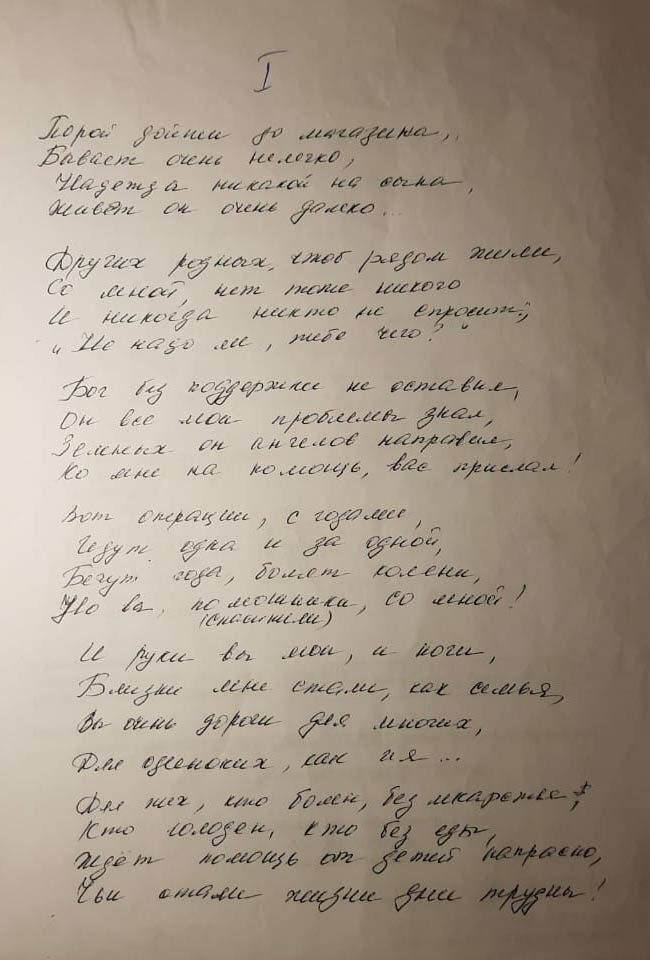 I
Порой дойти до магазина,
Бывает очень нелегко,
Надежда никакой на сына,
Живёт он очень далеко...
Других родных, чтоб рядом жили,
Со мной, нет тоже никого
И никогда никто не спросит,
"Не надо ли, тебе чего?"
Бог без поддержки не оставил,
Он все мои проблемы знал,
Зеленых он ангелов направил,
Ко мне на помощь, вас прислал!
Вот операции, с годами,
Идут одна и за одной,
Бегут года, болят колени,
Но вы, помошники, со мной!
(спасители)
И руки вы мои, и ноги,
Близки мне стали, как семья,
Вы очень дороги для многих,
Для одиноких, как и я...
Для тех, кто болен, без лекарства,
Кто голоден, кто без еды,
Ждёт помощь от детей напрасно,
Чьи стали жизни дни трудны!